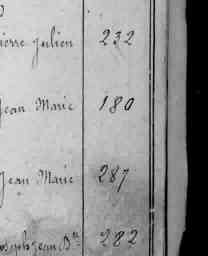 ierre Julien 232
Jean Marie 180
Jean Marie 287
oseph Jean Bte 282